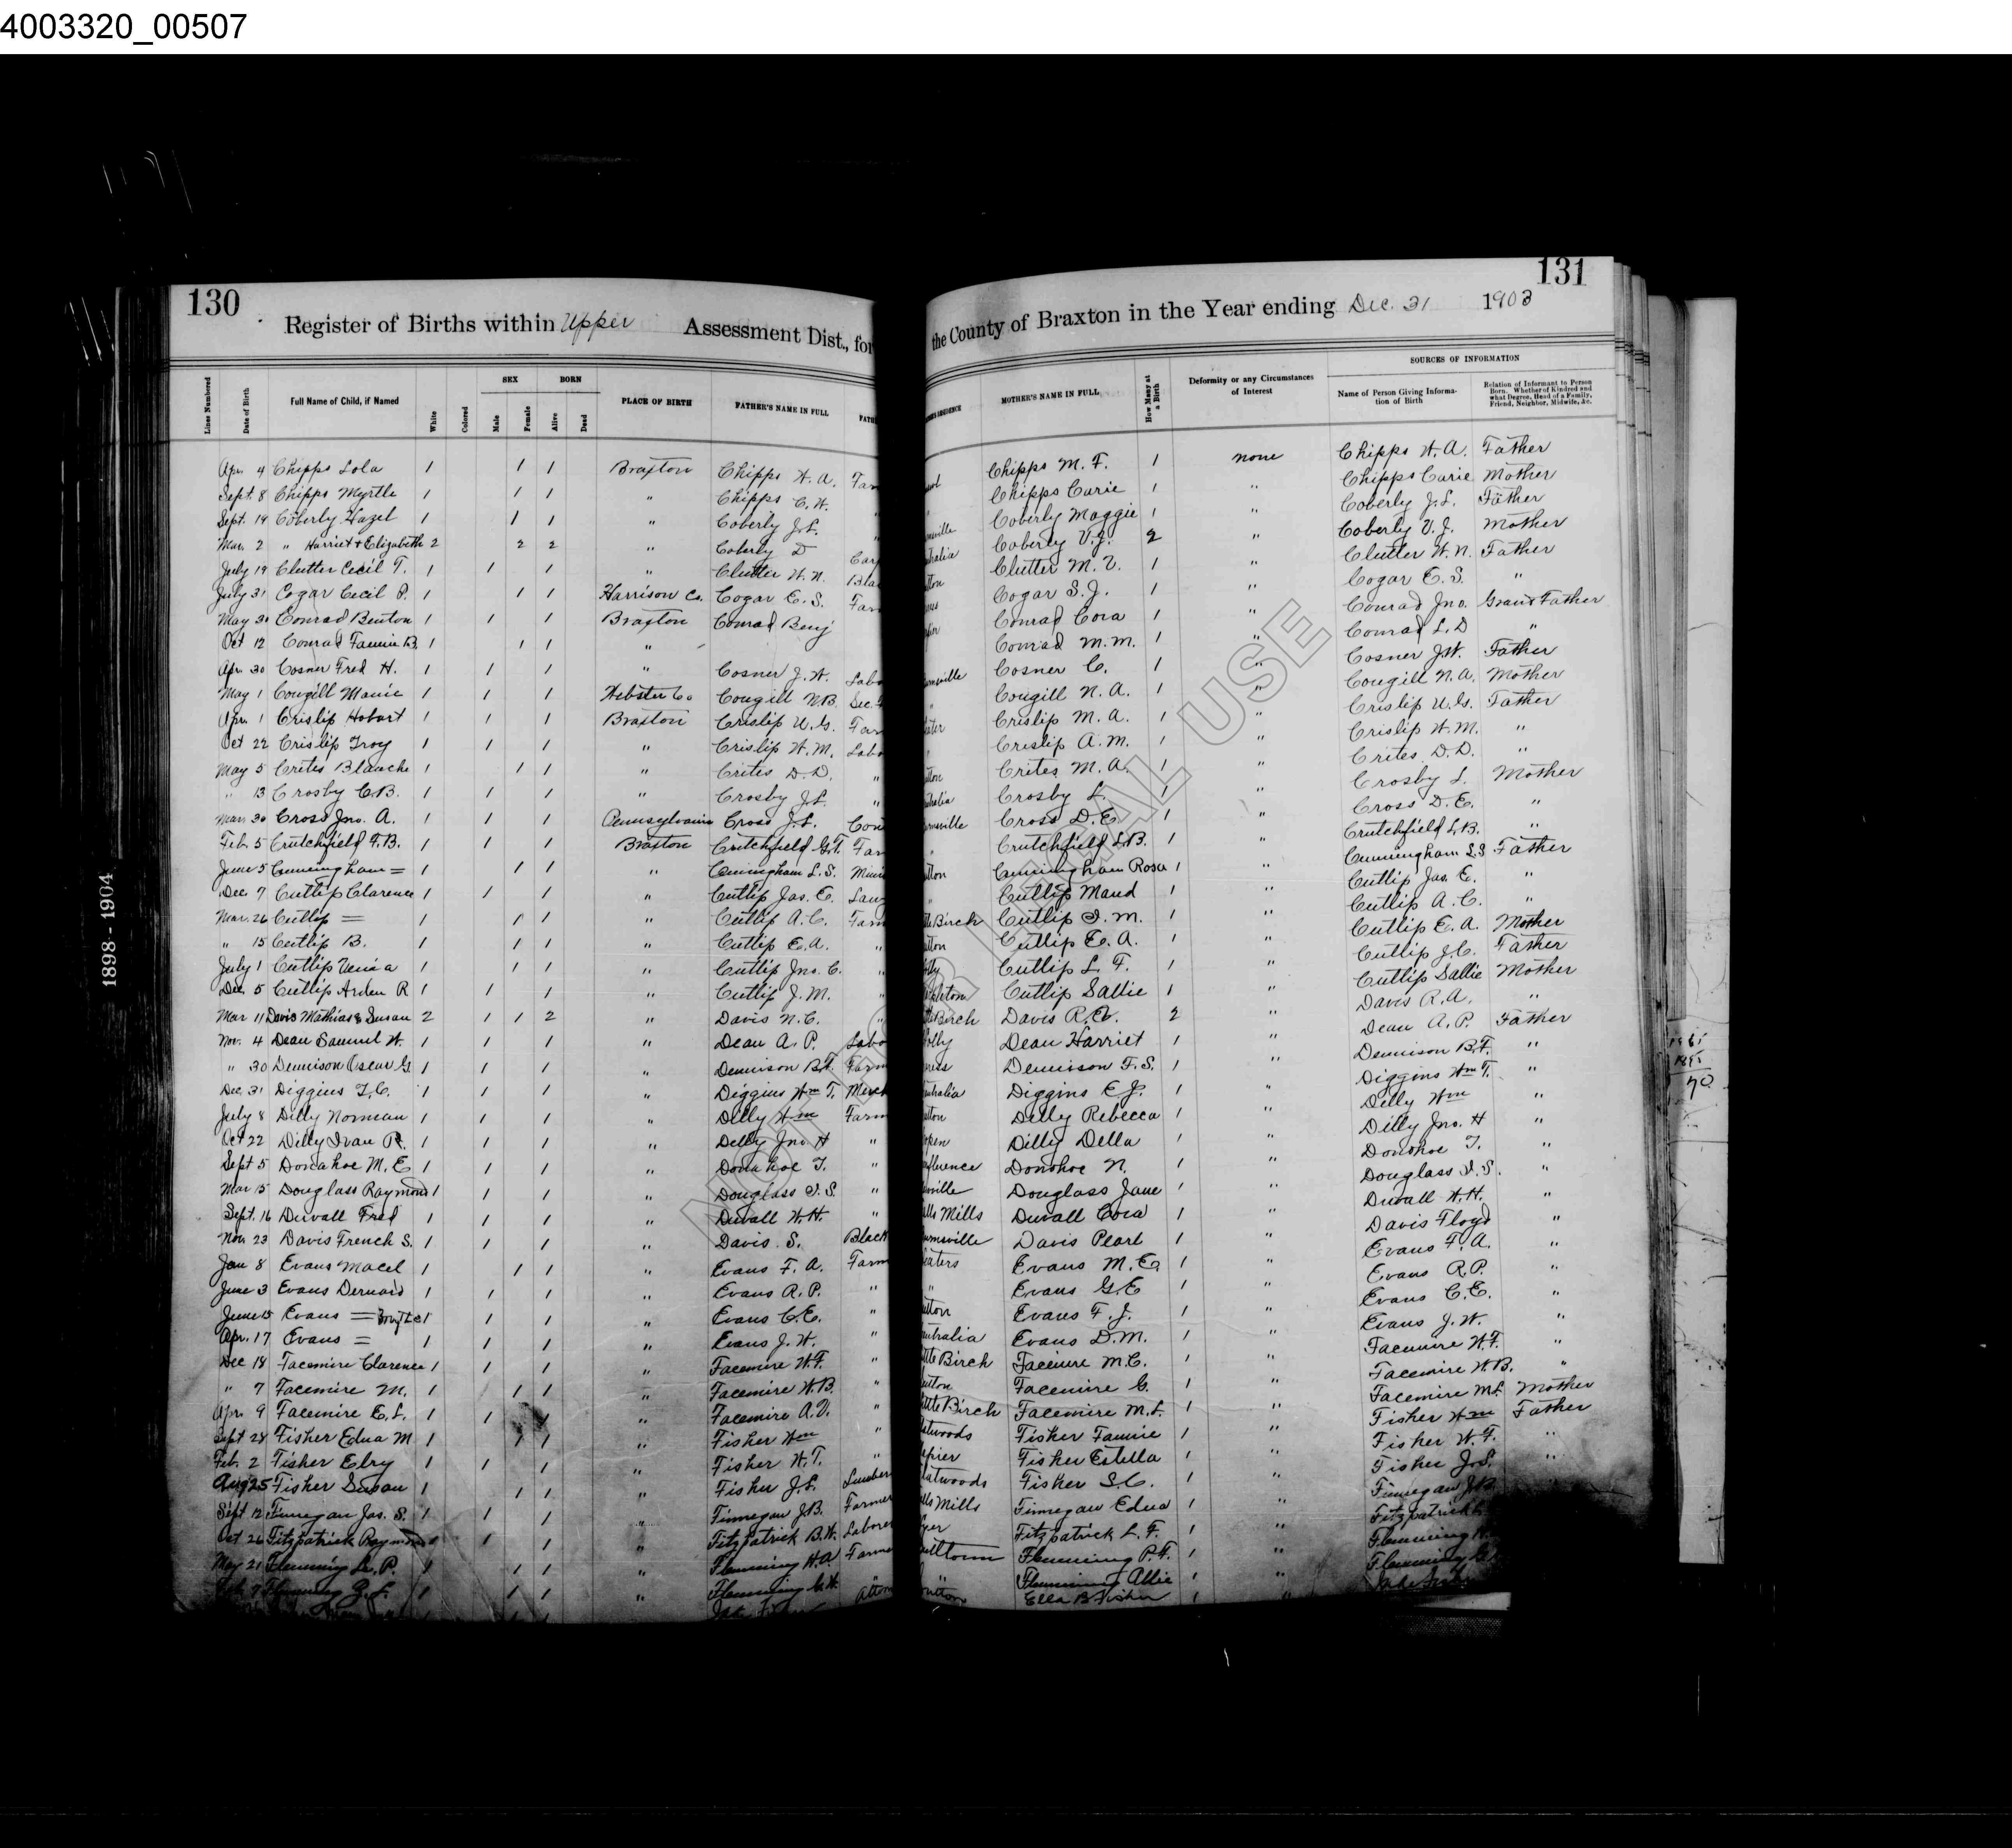 4003320_00507
130
Register of Births within Upper Assessment Dist., for
the County of Braxton in the Year ending Dec. 31 1903
131
1898-1904
Line Numbered Date of Birth Full Name of Child, if Named White Colored SEX Male Female BORN Alive Dead PLACE OF BIRTH FATHER'S NAME IN FULL
MOTHER'S NAME IN FULL How Many at a Birth Deformity or any Circumstances of Interest SOURCES OF INFORMATION Name of Person Giving Information of Birth Relation of Informant to Person Born. Whether of Kindred and what Degree, Head of a Family, Friend, Neighbor, Midwife, &c.
Apr. 4 Chipps Lola 1 1 1 Braxton Chipps W. A. Far Chipps M. F. 1 none Chipps W. A. Father
Sept. 8 Chipps Myrtle 1 1 1 " Chipps C. W. " Chipps Carie 1 " Chipps Carie Mother
Sept. 19 Coberly Hazel 1 1 1 " Coberly J. L. " Coberly Maggie 1 " Coberly J. L. Father
Mar. 2 " Harriet & Elizabeth 2 2 2 " Coberly D Car Coberly V. J. 2 " Coberly V. J. Mother
July 19 Clutter Cecil T. 1 1 1 " Clutter W. N. Bla Clutter M. V. 1 " Clutter W. N. Father
July 31 Cogar Cecil P. 1 1 1 Harrison Co. Cogar E. S. Far Cogar S. J. 1 " Cogar E. S. "
May 30 Conrad Benton 1 1 1 Braxton Conrad Benj Conrad Cora 1 " Conrad Jno. Grand Father
Oct 12 Conrad Fannie B. 1 1 1 " Conrad M. M. 1 " Conrad L. D "
Apr. 30 Cosner Fred H. 1 1 1 " Cosner J. W. Labo Cosner C. 1 " Cosner J. W. Father
May 1 Cougill 1 1 1 Webster Co Cougill N. B. Cougill N. A. 1 " Cougill N. A. Mother
Apr. 1 Crislip Hobart 1 1 1 Braxton Crislip U. G. Far Crislip M. A. 1 " Crislip U. G. Father
Oct 22 Crislip Troy 1 1 1 " Crislip W. M. Labo Crislip A. M. 1 " Crislip W. M. "
May 5 Crites Blanche 1 1 1 " Crites D. D. " Crites M. A. 1 " Crites D. D. "
" 13 Crosby C. B. 1 1 1 " Crosby J. L. " Crosby L. 1 " Crosby L. Mother
Mar. 30 Cross Jno. A. 1 1 1 Pennsylvania Cross J. L. Cross D. E. 1 " Cross D. E. "
Feb. 5 Crutchfield F. B. 1 1 1 Braxton Crutchfield G. T. Far Crutchfield L. B. 1 " Crutchfield L. B. "
June 5 Cunningham = 1 1 1 " Cunningham L. S. Cunningham Rosa 1 " Cunningham L. S Father
Dec. 7 Cutlip Clarence 1 1 1 " Cutlip Jas. E. Cutlip Maud 1 " Cutlip Jas. E. "
Mar. 26 Cutlip = 1 1 1 " Cutlip A. C. Farm Birch Cutlip I. M. 1 " Cutlip A. C. "
" 15 Cutlip B. 1 1 1 " Cutlip E. A. " Cutlip E. A. 1 " Cutlip E. A. Mother
July 1 Cutlip 1 1 1 " Cutlip Jno. C. " Cutlip L. F. 1 " Cutlip J. C. Father
Dec. 5 Cutlip Arden R 1 1 1 " Cutlip J. M. " Cutlip Sallie 1 " Cutlip Sallie Mother
Mar 11 Davis Mathias & Susan 2 1 1 2 " Davis N. C. " Birch Davis R. A. 2 " Davis R. A. "
Nov. 4 Dean Samuel W. 1 1 1 " Dean A. P. Labo Dean Harriet 1 " Dean A. P. Father
" 30 Dennison Oscar G 1 1 1 " Dennison B. F. Farm Dennison F. S. 1 " Dennison B. F. "
Dec. 31 Diggins T. C. 1 1 1 " Diggins Wm T. Merch Diggins E J. 1 " Diggins Wm T. "
July 8 Dilly Norman 1 1 1 " Dilly Wm Farm Dilly Rebecca 1 " Dilly Wm "
Oct 22 Dilly Ivan R. 1 1 1 " Dilly Jno. H " Dilly Della 1 " Dilly Jno. H "
Sept 5 Donahoe M. E 1 1 1 " Donahoe T. " Donohoe N. 1 " Donohoe T. "
Mar 15 Douglass Raymond 1 1 1 " Douglass I. S. " Douglass Jane 1 " Douglass I. S. "
Sept. 16 Duvall Fred 1 1 1 " Duvall W. H. " Mills Duvall Cora 1 " Duvall W. H. "
Nov. 23 Davis French S. 1 1 1 " Davis S. Black Davis Pearl 1 " Davis Floyd "
Jan 8 Evans Macel 1 1 1 " Evans F. A. Farm Evans M. E. 1 " Evans F. A. "
June 3 Evans 1 1 1 " Evans R. P. " Evans G. E 1 " Evans R. P. "
June 15 Evans = 1 1 1 " Evans C. E. " Evans F. J. 1 " Evans C. E. "
Apr. 17 Evans = 1 1 1 " Evans J. W. " Evans D. M. 1 " Evans J. W. "
Dec 18 Facemire Clarence 1 1 1 " Facemire W. F. " Birch Facemire M. C. 1 " Facemire W. F. "
" 7 Facemire M. 1 1 1 " Facemire W. B. " Facemire G. 1 " Facemire W. B. "
Apr. 9 Facemire E. L. 1 1 1 " Facemire A. V. " Birch Facemire M. L. 1 " Facemire M. L. Mother
Sept 28 Fisher Edna M 1 1 1 " Fisher Wm " Fisher Fannie 1 " Fisher Wm Father
Feb. 2 Fisher Elry 1 1 1 " Fisher W. T. " Fisher Estella 1 " Fisher W. T. "
Aug 25 Fisher Susan 1 1 1 " Fisher J. L. Lumber Fisher S. C. 1 " Fisher J. L. "
Sept 12 Finnegan Jas. S. 1 1 1 " Finnegan J. B. Farmer Mills Finnegan Edna 1 " Finnegan J. B.
Oct 26 Fitzpatrick Raymond 1 1 1 " Fitzpatrick B. W. Laborer Fitzpatrick L. F. 1 " Fitzpatrick
May 21 Flemming L. P. 1 1 1 " Flemming H. A. Farmer Flemming P. F. 1 " Flemming
Flemming 1 1 1 " Flemming G. W. " Flemming Allie 1 " Flemming
Ella B Fisher 1
NOT FOR LEGAL USE